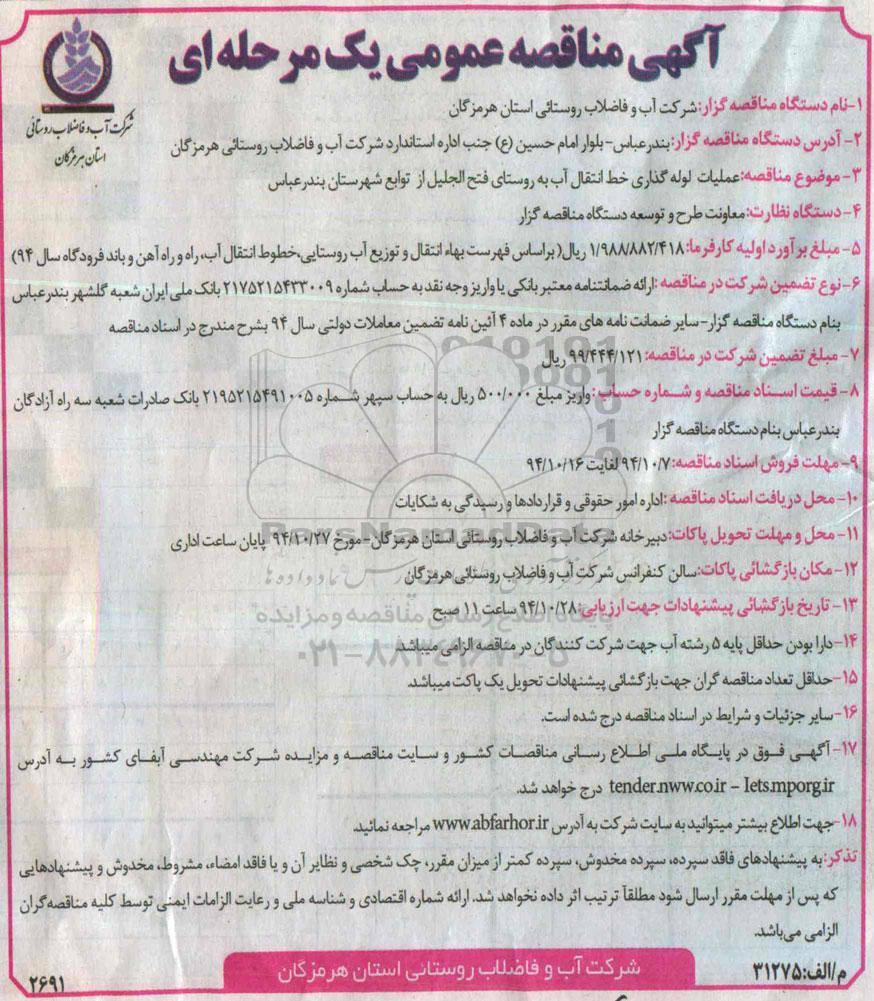 آگهی مناقصه عمومی یک مرحله ای
شرکت آب و فاضلاب روستائی
استان هرمزگان
۱-نام دستگاه مناقصه گزار:شرکت آب و فاضلاب روستائی استان هرمزگان
۲- آدرس دستگاه مناقصه گزار:بندرعباس-بلوار امام حسین (ع) جنب اداره استاندارد شرکت آب و فاضلاب روستائی هرمزگان
۳-موضوع مناقصه:عملیات لوله گذاری خط انتقال آب به روستای فتح الجلیل از توابع شهرستان بندرعباس
۴-دستگاه نظارت:معاونت طرح و توسعه دستگاه مناقصه گزار
۵- مبلغ برآورد اولیه کارفرما: ۱/۹۸۸/۸۸۲/۴۱۸ ریال( براساس فهرست بهاء انتقال و توزیع آب روستایی،خطوط انتقال آب، راه و راه آهن و باند فرودگاه سال ۹۴)
۶-نوع تضمین شرکت در مناقصه :ارائه ضمانتنامه معتبر بانکی یا واریز وجه نقد به حساب شماره ۲۱۷۵۲۱۵۴۳۳۰۰۹ بانک ملی ایران شعبه گلشهر بندرعباس
بنام دستگاه مناقصه گزار-سایر ضمانت نامه های مقرر در ماده ۴ آئین نامه تضمین معاملات دولتی سال ۹۴ بشرح مندرج در اسناد مناقصه
۷- مبلغ تضمین شرکت در مناقصه: ۹۹/۴۴۴/۱۲۱ ریال
۸- قیمت اسـناد مناقصه و شـماره حساب :واریز مبلغ ۵۰۰/۰۰۰ ریال به حساب سپهر شـماره ۲۱۹۵۲۱۵۴۹۱۰۰۵ بانک صادرات شعبه سه راه آزادگان
بندرعباس بنام دستگاه مناقصه گزار
۹-مهلت فروش اسناد مناقصه: ۹۴/۱۰/۷ لغایت ۹۴/۱۰/۱۶
۱۰- محل دریافت اسناد مناقصه :اداره امور حقوقی و قراردادها و رسیدگی به شکایات
۱۱- محل و مهلت تحویل پاکات:دبیرخانه شرکت آب و فاضلاب روستائی استان هرمزگان-مورخ ۹۴/۱۰/۲۷ پایان ساعت اداری
۱۲-مکان بازگشائی پاکات:سالن کنفرانس شرکت آب و فاضلاب روستائی هرمزگان
۱۳- تاریخ بازگشائی پیشنهادات جهت ارزیابی: ۹۴/۱۰/۲۸ ساعت ۱۱ صبح
۱۴-دارا بودن حداقل پایه ۵ رشته آب جهت شرکت کنندگان در مناقصه الزامی میباشد.
۱۵-حداقل تعداد مناقصه گران جهت بازگشائی پیشنهادات تحویل یک پاکت میباشد.
۱۶-سایر جزئیات و شرایط در اسناد مناقصه درج شده است.
۱۷- آگهـی فـوق در پایـگاه ملـی اطـلاع رسـانی مناقصـات کشـور و سـایت مناقصـه و مزایـده شـرکت مهندسـی آبفـای کشـور بـه آدرس
tender.nww.co.ir – Iets.mporg.ir درج خواهد شد.
۱۸-جهت اطلاع بیشتر میتوانید به سایت شرکت به آدرس www.abfarhor.ir مراجعه نمائید.
تذکر:به پیشنهادهای فاقد سپرده، سپرده مخدوش، سپرده کمتر از میزان مقرر، چک شخصی و نظایر آن و یا فاقد امضاء، مشروط، مخدوش و پیشنهادهایی
که پس از مهلت مقرر ارسال شود مطلقاً ترتیب اثر داده نخواهد شد. ارائه شماره اقتصادی و شناسه ملی و رعایت الزامات ایمنی توسط کلیه مناقصه‌گران
الزامی می‌باشد.
م/الف:۳۱۲۷۵
شرکت آب و فاضلاب روستائی استان هرمزگان
۲۶۹۱
ParsNamadData
پایگاه اطلاع رسانی مناقصه و مزایده